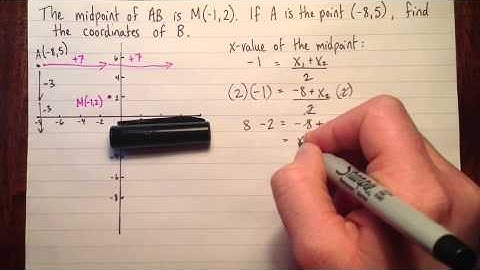 The midpoint of AB is M(-1,2). If A is the point (-8,5), find
the coordinates of B.
A(-8,5)
+7 +7
-3
-3
M(-1,2)
-8 -6 -4 -2
6
4
2
-6
-8
x-value of the midpoint:
-1 = x₁+x₂ / 2
(2)(-1) = -8+x₂ (2) / 2
8 -2 = -8+
= x
Sharpie